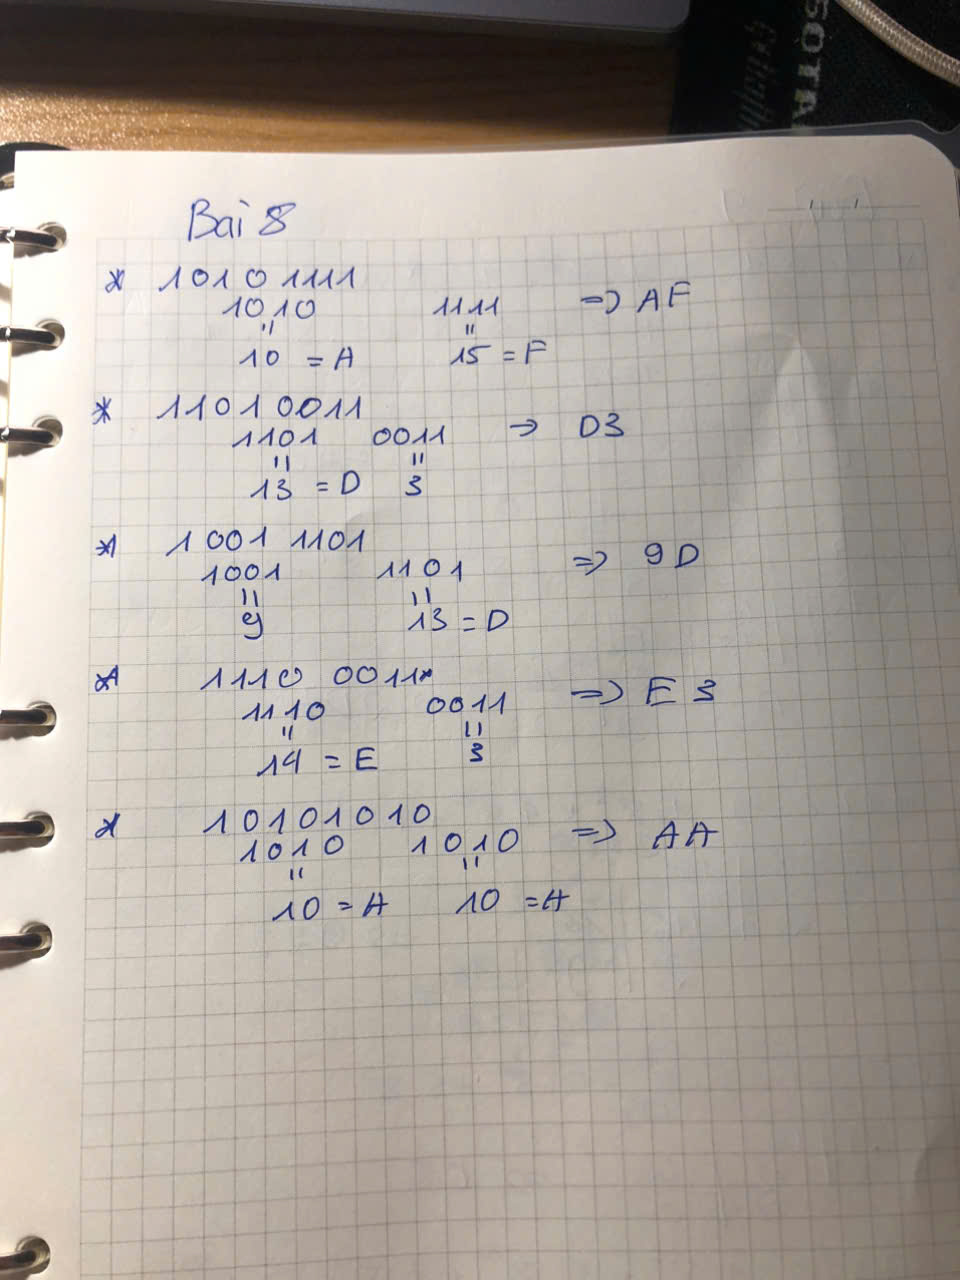 SOTA
Bai 8
* 1010 1111
1010 1111 => AF
" "
10 = A 15 = F
* 11010011
1101 0011 => D3
" "
13 = D 3
* 1001 1101
1001 1101 => 9D
" "
9 13 = D
* 1110 0011
1110 0011 => E3
" "
14 = E 3
* 10101010
1010 1010 => AA
" "
10 = A 10 = A